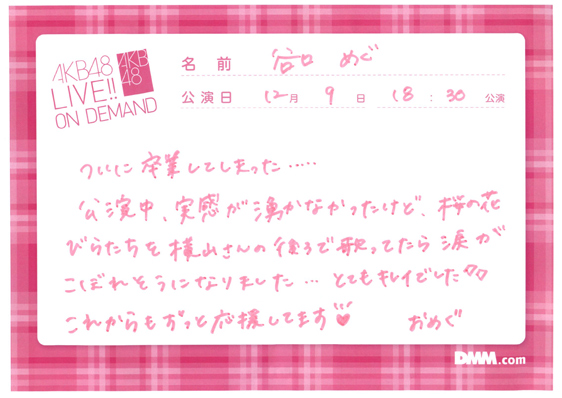 AKB48
LIVE!!
ON DEMAND
AKB
48
名前 谷口 めぐ
公演日 12月 9日 18:30 公演
ついに卒業してしまった……
公演中、実感が湧かなかったけど、桜の花
びらたちを横山さんの後ろで歌ってたら涙が
こぼれそうになりました… とてもキレイでした♡♡
これからもずっと応援してます♥
おめぐ
DMM.com